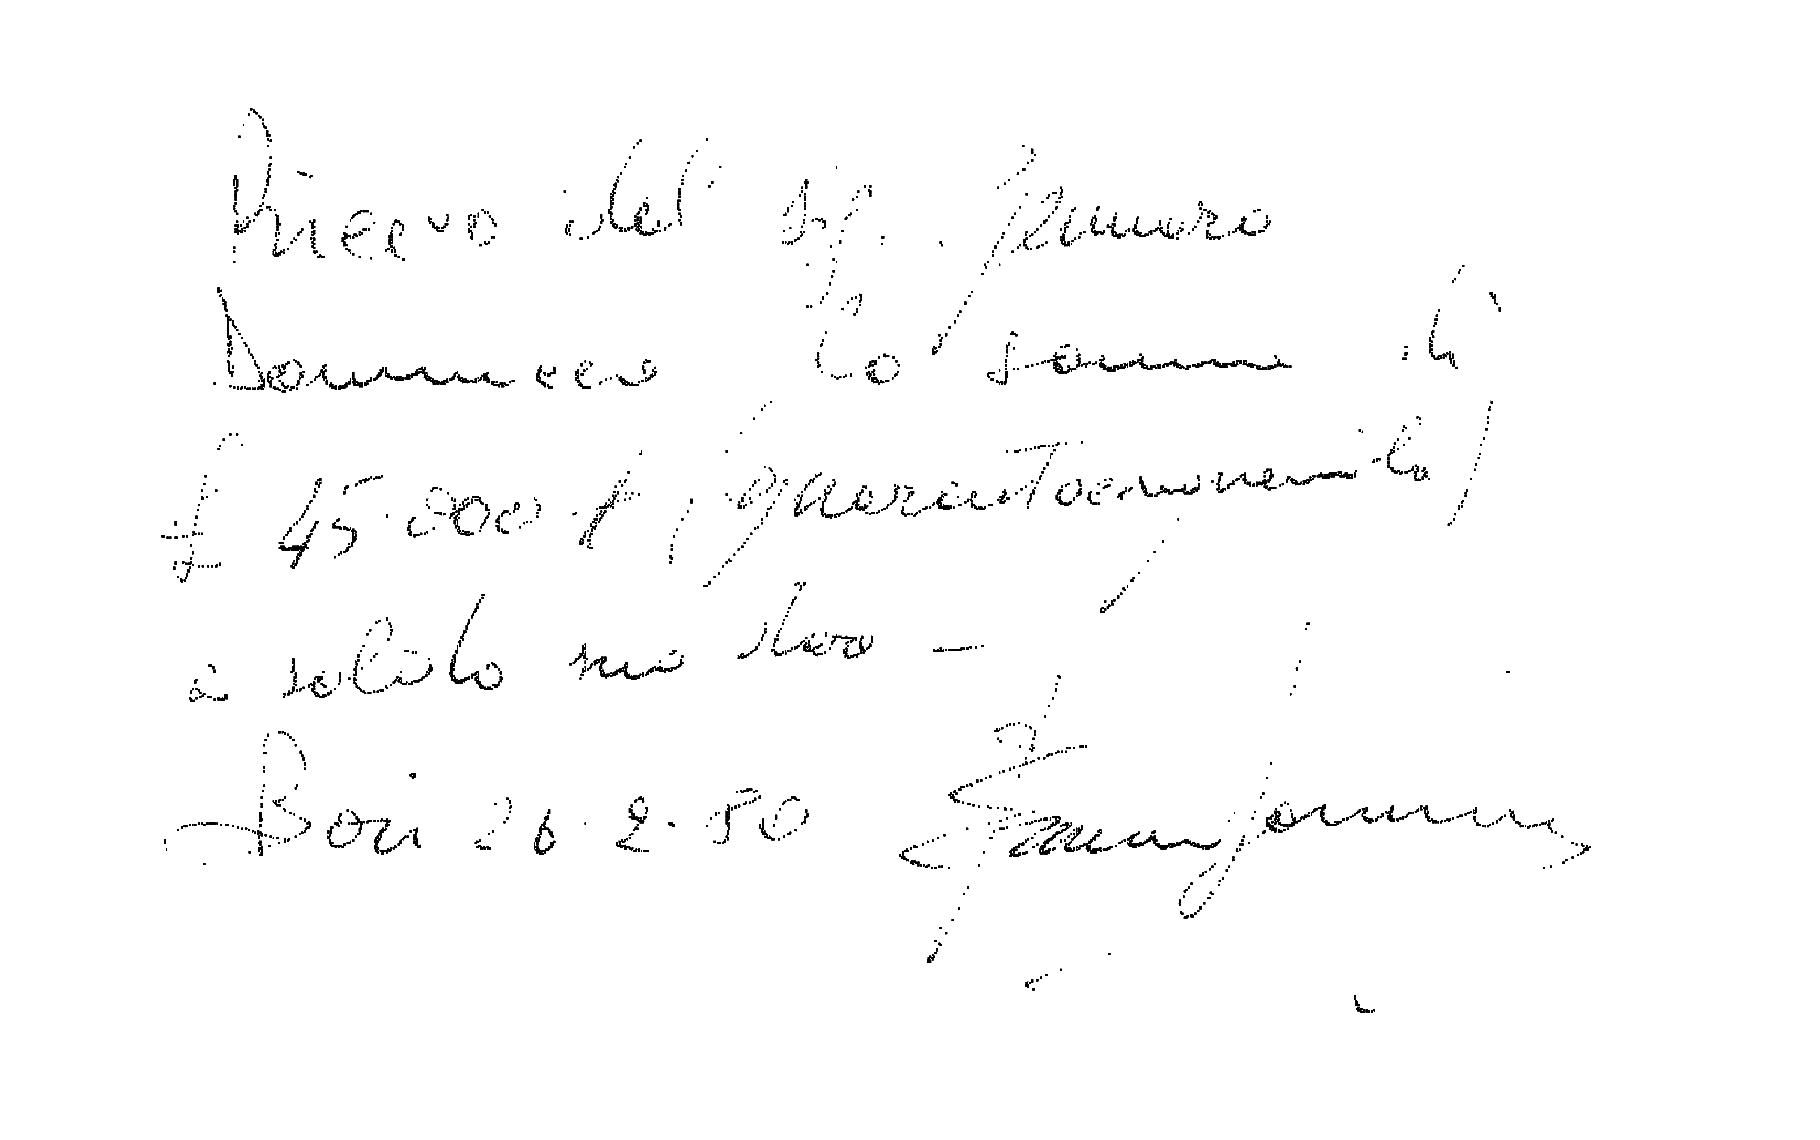 Ricevo dal Sig. Gennaro
Domenico la somma di
£ 45.000 # (quarantacinquemila)
a saldo suo dare —
Bari 26.2.50